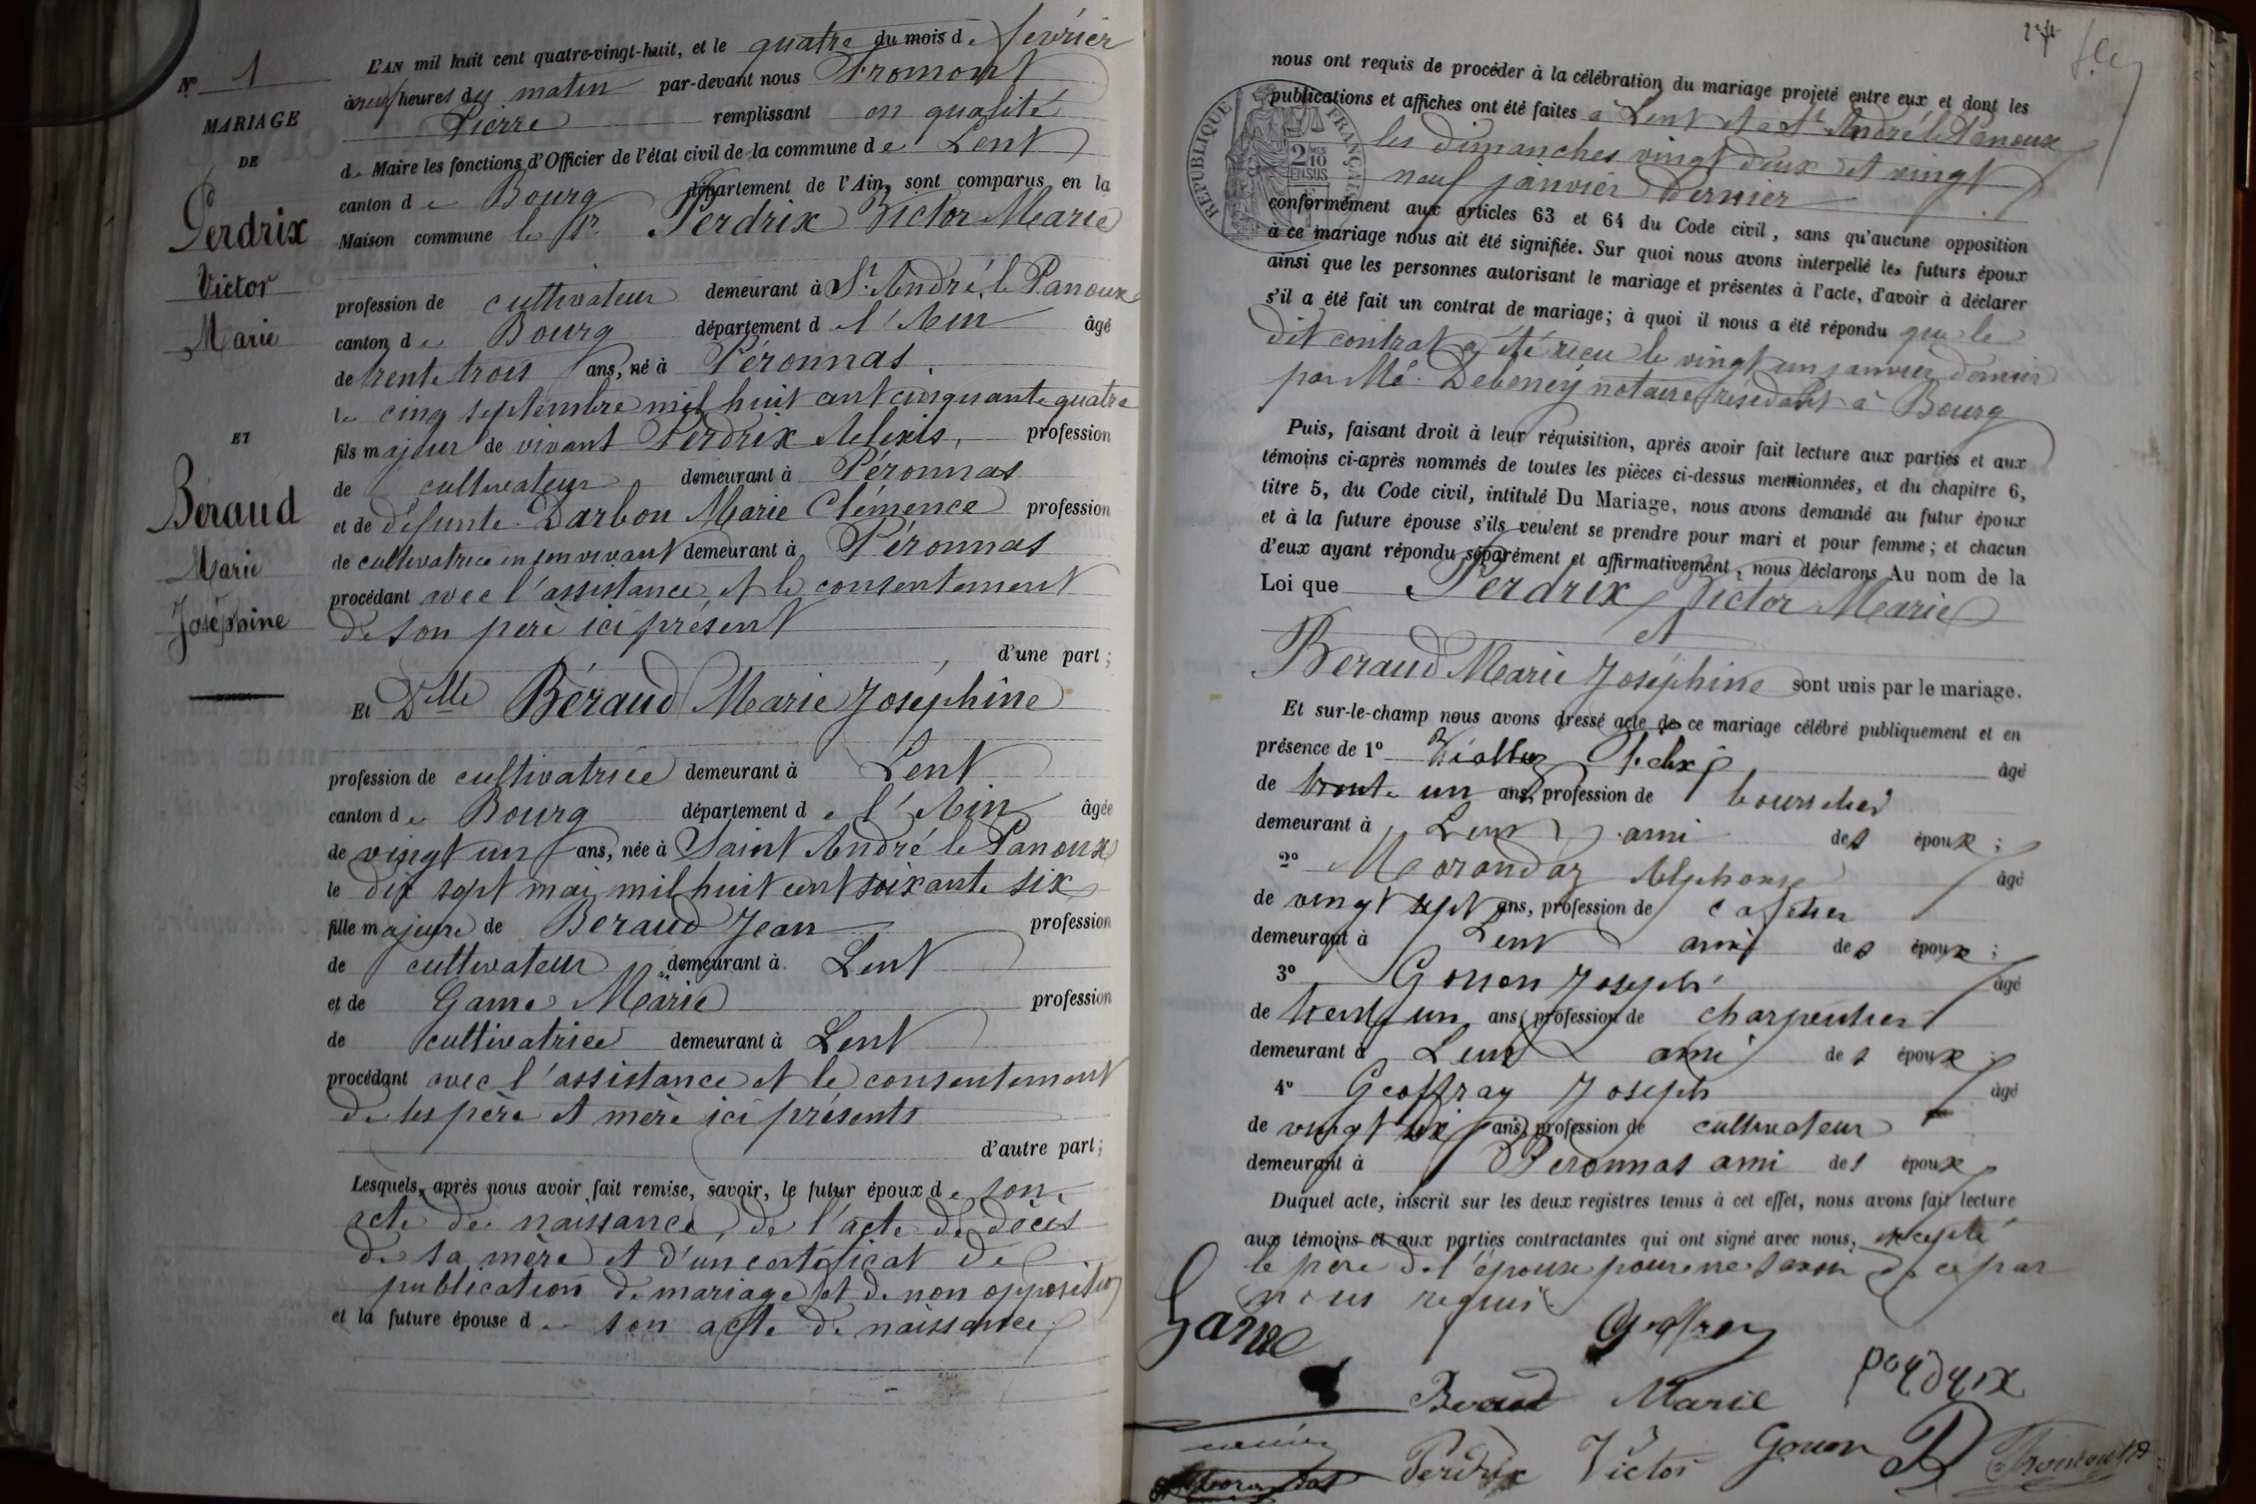 N° 1
MARIAGE
DE
Perdrix
Victor
Marie
ET
Béraud
Marie
Joséphine
L'AN mil huit cent quatre-vingt-huit, et le quatre du mois de février
à neuf heures du matin par-devant nous Fromont
Pierre remplissant en qualité
de Maire les fonctions d'Officier de l'état civil de la commune de Lent
canton de Bourg département de l'Ain, sont comparus en la
Maison commune le Sr. Perdrix Victor Marie
profession de cultivateur demeurant à St. André le Panoux
canton de Bourg département de l'Ain âgé
de trente trois ans, né à Péronnas
le cinq septembre mil huit cent cinquante quatre
fils majeur de vivant Perdrix Alexis, profession
de cultivateur demeurant à Péronnas
et de défunte Darbon Marie Clémence profession
de cultivatrice en son vivant demeurant à Péronnas
procédant avec l'assistance et le consentement
de son père ici présent
d'une part;
Et Dlle Béraud Marie Joséphine
profession de cultivatrice demeurant à Lent
canton de Bourg département de l'Ain âgée
de vingt un ans, née à Saint André le Panoux
le dix sept mai mil huit cent soixante six
fille majeure de Beraud Jean profession
de cultivateur demeurant à Lent
et de Game Marie profession
de cultivatrice demeurant à Lent
procédant avec l'assistance et le consentement
de ses père et mère ici présents
d'autre part;
Lesquels, après nous avoir fait remise, savoir, le futur époux de son
acte de naissance, de l'acte de décès
de sa mère et d'un certificat de
publication de mariage et de non opposition
et la future épouse de son acte de naissance
nous ont requis de procéder à la célébration du mariage projeté entre eux et dont les
publications et affiches ont été faites à Lent et à St André le Panoux
les dimanches vingt deux et vingt
neuf janvier dernier
REPUBLIQUE FRANÇAISE
2 DES 10
EN SUS
conformément aux articles 63 et 64 du Code civil, sans qu'aucune opposition
à ce mariage nous ait été signifiée. Sur quoi nous avons interpellé les futurs époux
ainsi que les personnes autorisant le mariage et présentes à l'acte, d'avoir à déclarer
s'il a été fait un contrat de mariage; à quoi il nous a été répondu que le
dit contrat a été reçu le vingt un janvier dernier
par Mé. Debeney notaire résidant à Bourg
Puis, faisant droit à leur réquisition, après avoir fait lecture aux parties et aux
témoins ci-après nommés de toutes les pièces ci-dessus mentionnées, et du chapitre 6,
titre 5, du Code civil, intitulé Du Mariage, nous avons demandé au futur époux
et à la future épouse s'ils veulent se prendre pour mari et pour femme; et chacun
d'eux ayant répondu séparément et affirmativement, nous déclarons Au nom de la
Loi que Perdrix Victor Marie
et
Beraud Marie Joséphine sont unis par le mariage.
Et sur-le-champ nous avons dressé acte de ce mariage célébré publiquement et en
présence de 1° Félix âgé
de trente un ans, profession de bourrelier
demeurant à Lent ami des époux;
2° Morandaz Alphonse âgé
de vingt sept ans, profession de cafetier
demeurant à Lent ami des époux;
3° Gonon Joseph âgé
de trente un ans, profession de charpentier
demeurant à Lent ami des époux;
4° Geoffray Joseph âgé
de vingt six ans, profession de cultivateur
demeurant à Péronnas ami des époux
Duquel acte, inscrit sur les deux registres tenus à cet effet, nous avons fait lecture
aux témoins et aux parties contractantes qui ont signé avec nous, excepté
le père de l'épouse pour ne savoir de ce par
nous requis
Game Geoffray
Beraud Marie perdrix
Perdrix Victor Gonon Fromont